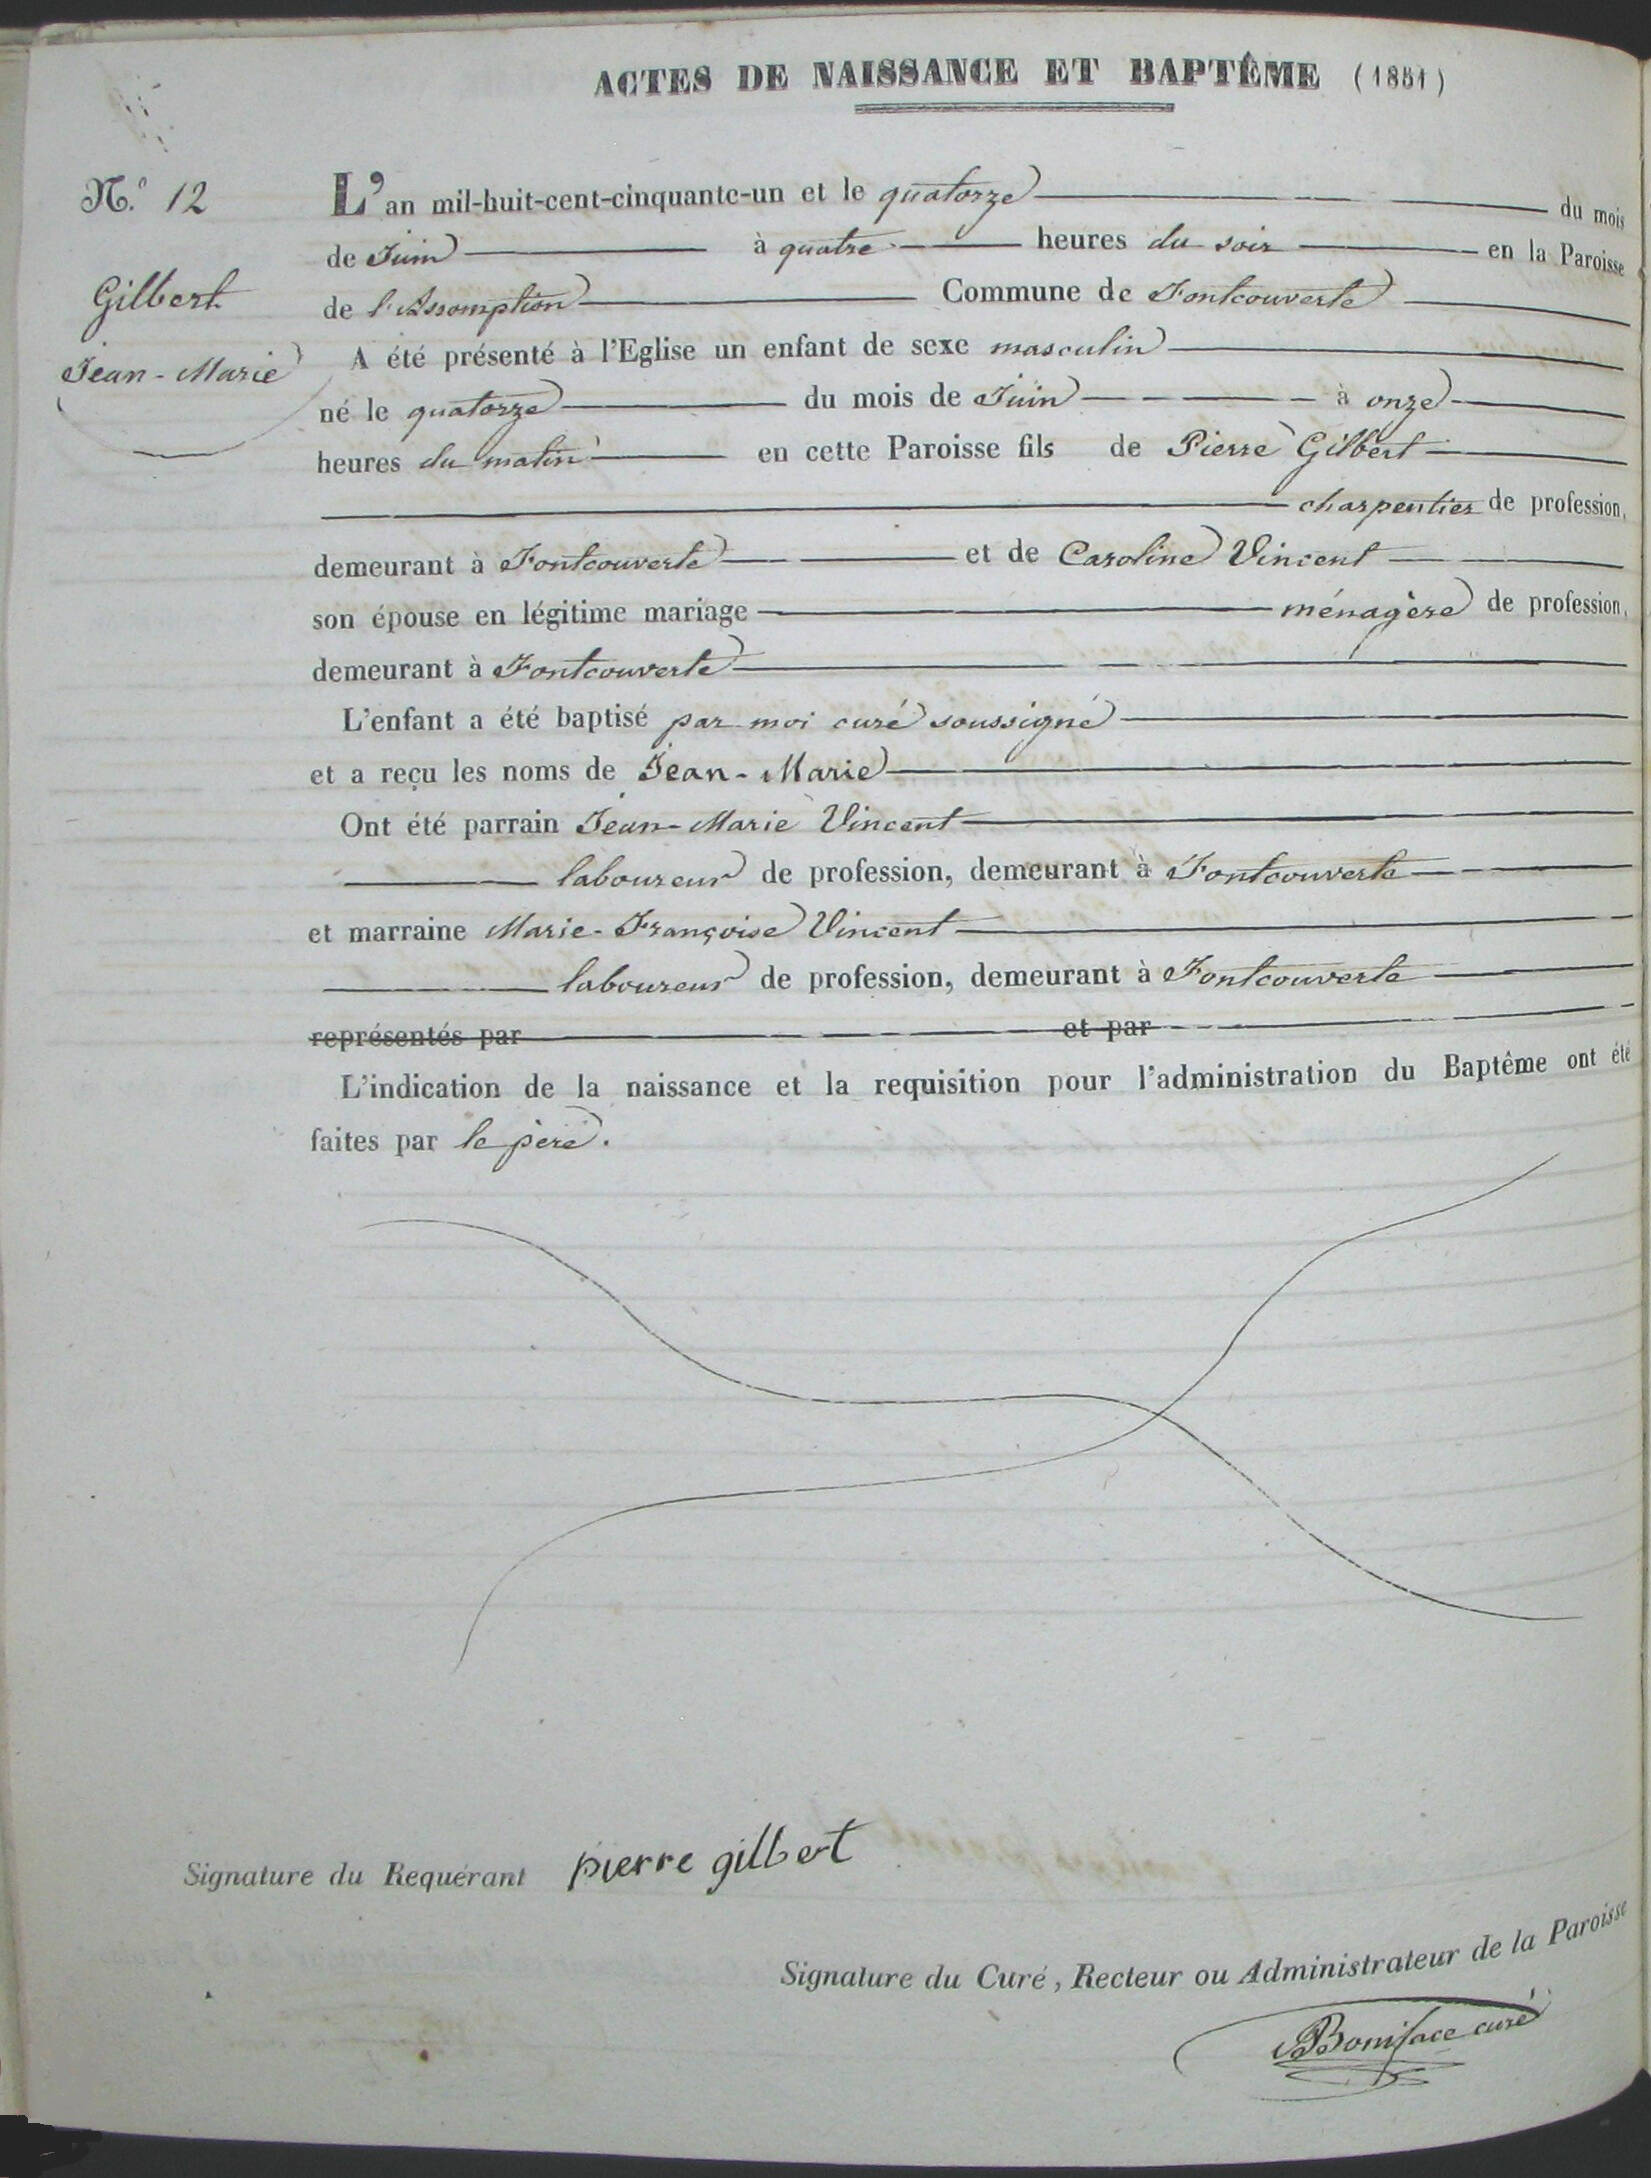 ACTES DE NAISSANCE ET BAPTÊME (1851)
N.o 12
Gilbert
Jean-Marie
L'an mil-huit-cent-cinquante-un et le quatorze du mois
de Juin à quatre heures du soir en la Paroisse
de l'Assomption Commune de Fontcouverte
A été présenté à l'Eglise un enfant de sexe masculin
né le quatorze du mois de Juin à onze
heures du matin en cette Paroisse fils de Pierre Gilbert
charpentier de profession,
demeurant à Fontcouverte et de Caroline Vincent
son épouse en légitime mariage ménagère de profession,
demeurant à Fontcouverte
L'enfant a été baptisé par moi curé soussigné
et a reçu les noms de Jean-Marie
Ont été parrain Jean-Marie Vincent
laboureur de profession, demeurant à Fontcouverte
et marraine Marie-Françoise Vincent
laboureur de profession, demeurant à Fontcouverte
représentés par et par
L'indication de la naissance et la requisition pour l'administration du Baptême ont été
faites par le père.
Signature du Requérant pierre gilbert
Signature du Curé, Recteur ou Administrateur de la Paroisse
Boniface curé